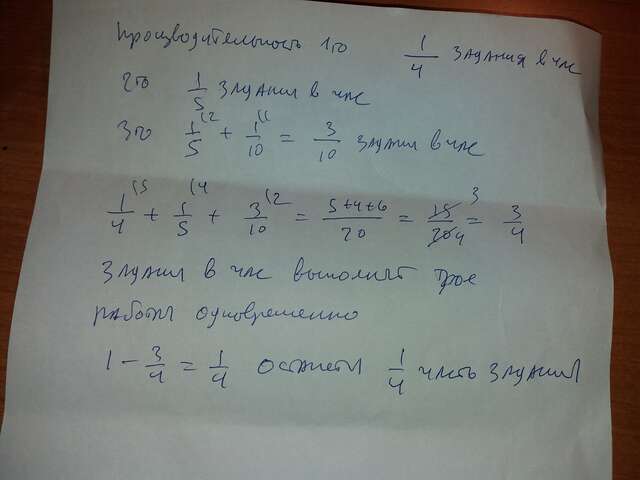 производительность 1го 1/4 здания в час
2го 1/5 здания в час
3го 1/5 + 1/10 = 3/10 здания в час
1/4 + 1/5 + 3/10 = 5+4+6/20 = 15/20 = 3/4
здания в час выполнят трое
работая одновременно
1 - 3/4 = 1/4 останется 1/4 часть здания